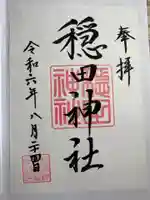 奉拝
穏田神社
令和六年八月二十四日